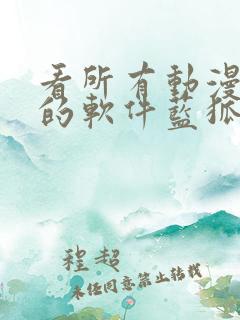 看所有動漫
的軟件藍狐
程超
未任同意禁止转载